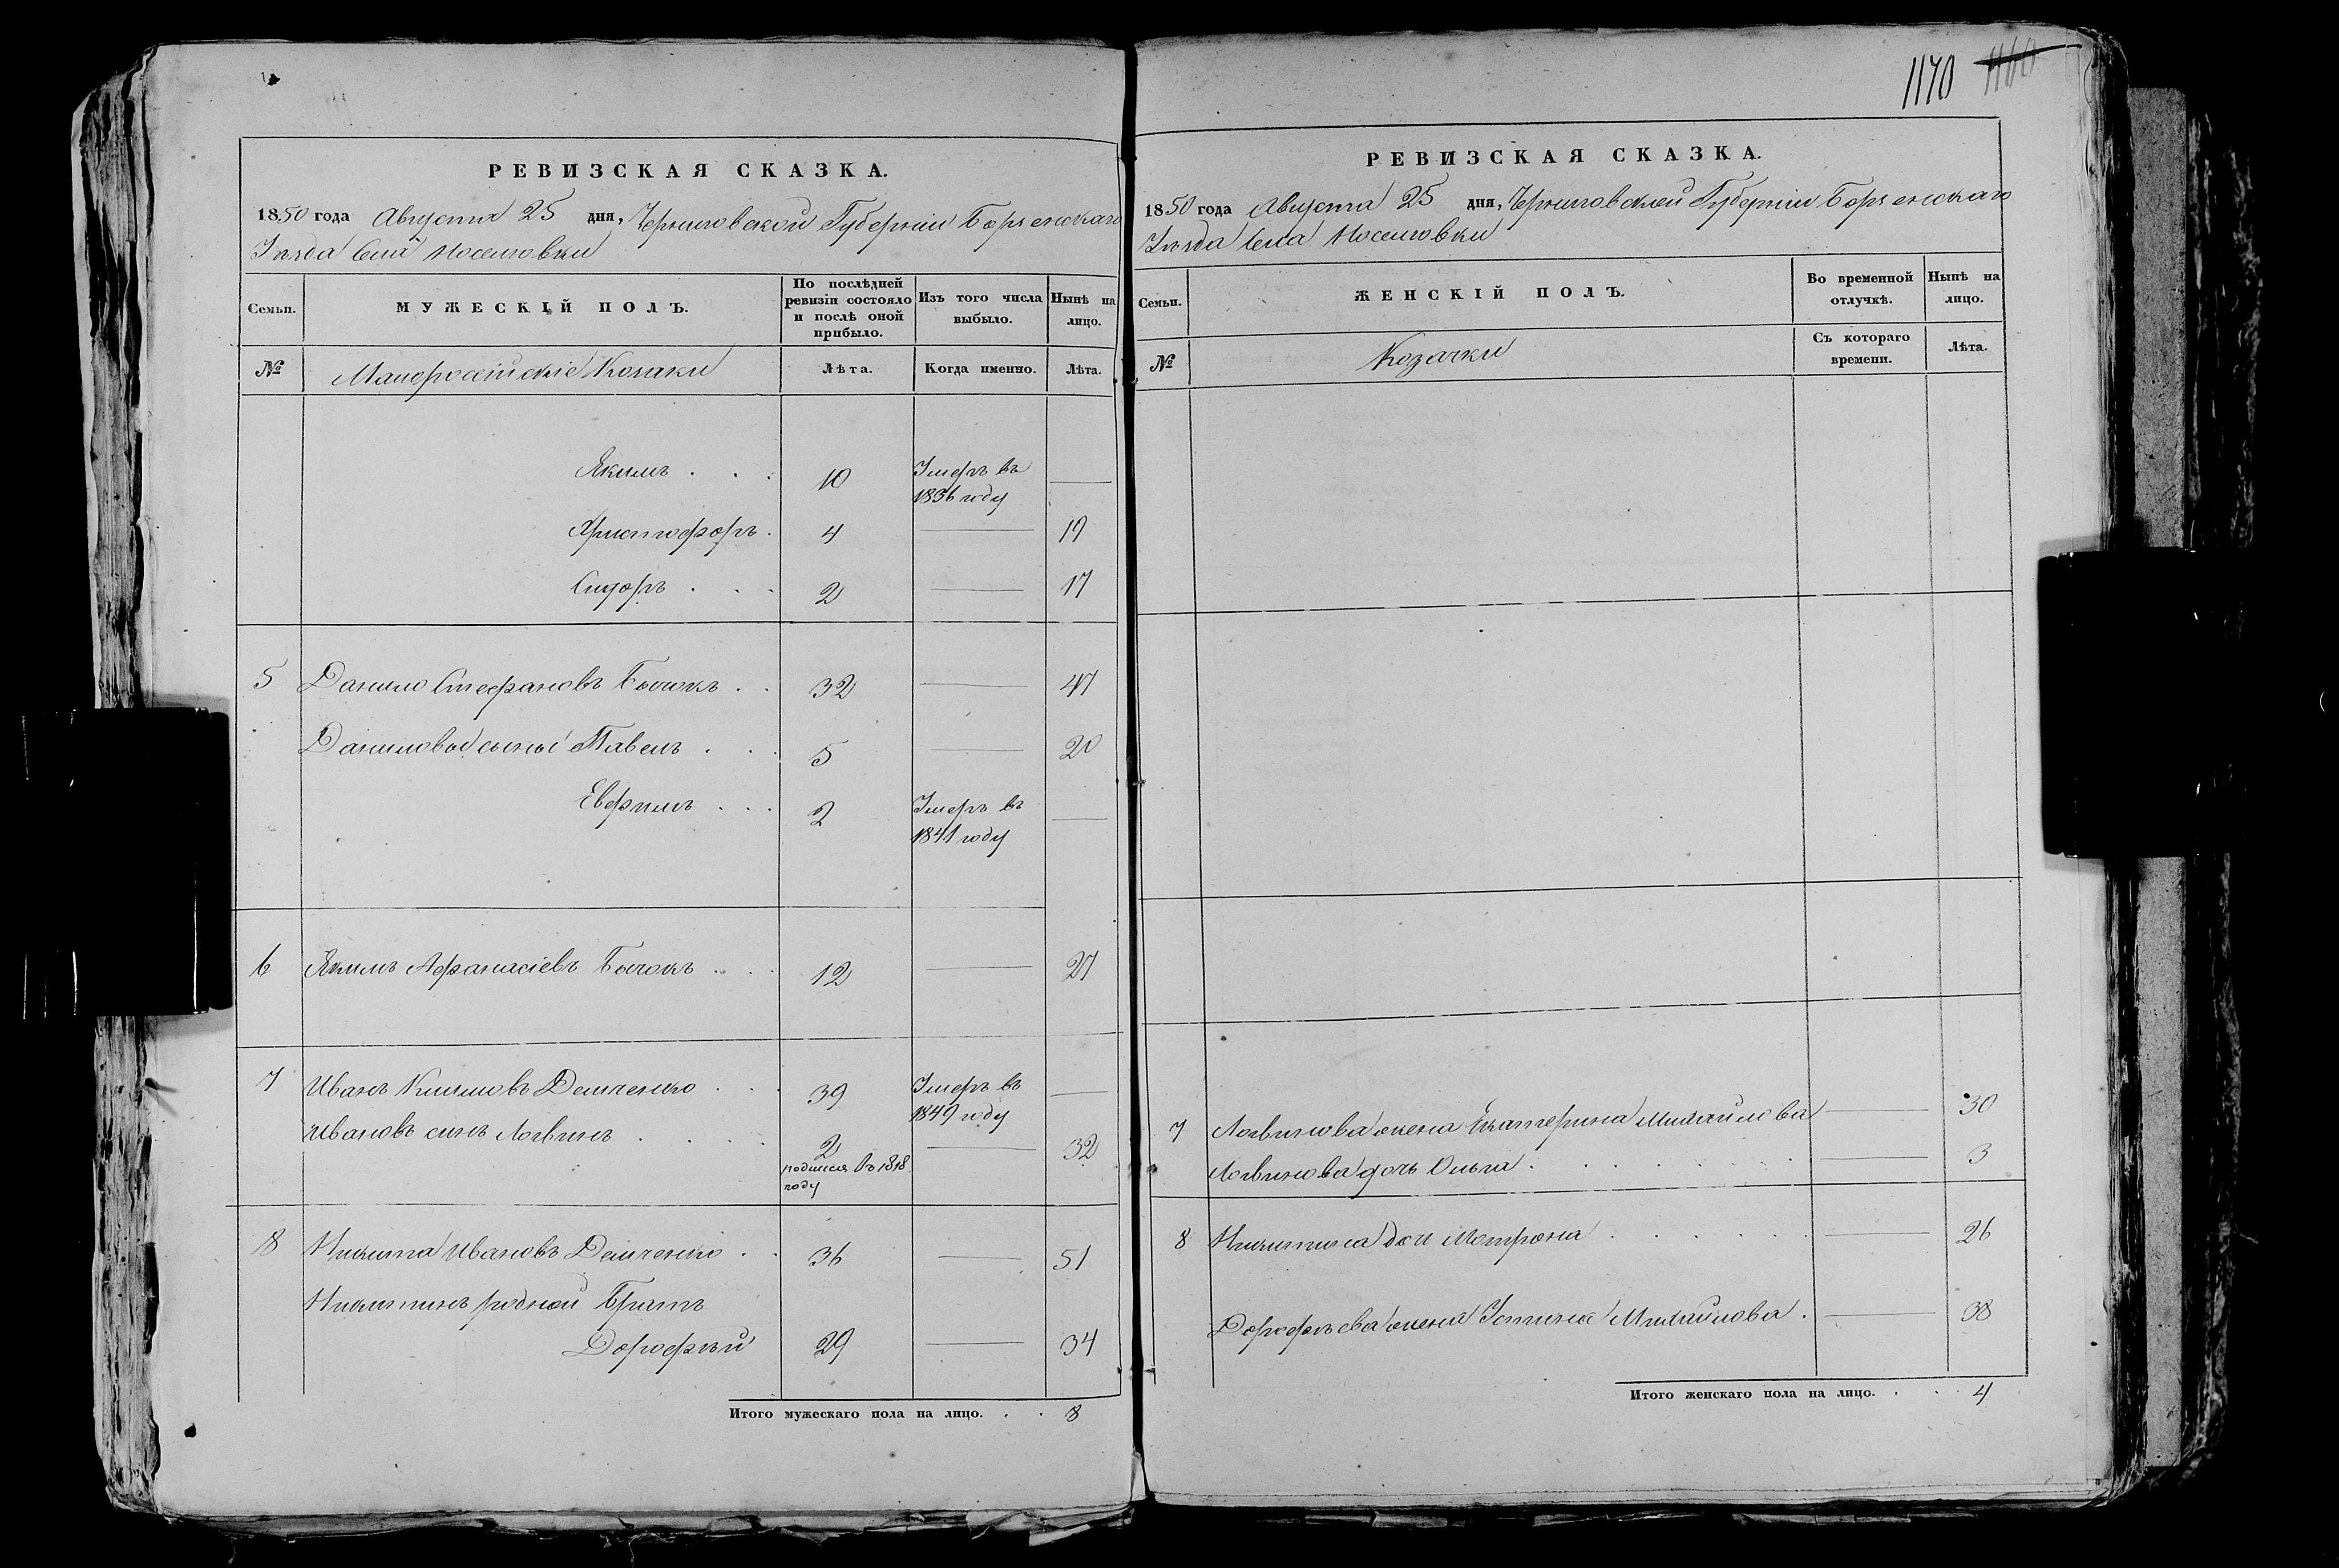 1170 1160
РЕВИЗСКАЯ СКАЗКА.
1850 года Августа 25 дня, Черниговской Губерніи Борзенскаго
Уѣзда Села Носеловки
Семьи.
МУЖЕСКІЙ ПОЛЪ.
По послѣдней ревизіи состояло и послѣ оной прибыло.
Изъ того числа выбыло.
Нынѣ на лицо.
№
Малоросійскіе Козаки
Лѣта.
Когда именно.
Лѣта.
Якимъ . . . 10 Умеръ въ 1836 году —
Христофоръ . 4 — 19
Сидоръ . . . 2 — 17
5 Данило Стефановъ Бычокъ . . 32 — 47
Даниловы сыны Павелъ . . . 5 — 20
Евфимъ . . . 2 Умеръ въ 1841 году —
6 Якимъ Афанасіевъ Бычокъ . . . 12 — 27
7 Иванъ Климовъ Демченко . . . 39 Умеръ въ 1849 году —
Ивановъ сынъ Логвинъ . . . . 2 — 32
родился въ 1818 году
8 Никита Ивановъ Демченко . . 36 — 51
Никитинъ родной Братъ
Дорофѣй 29 — 34
Итого мужескаго пола на лицо. . . 8
РЕВИЗСКАЯ СКАЗКА.
1850 года Августа 25 дня, Черниговской Губерніи Борзенскаго
Уѣзда Села Носеловки
Семьи.
ЖЕНСКІЙ ПОЛЪ.
Во временной отлучкѣ.
Нынѣ на лицо.
№
Козачки
Съ котораго времени.
Лѣта.
7 Логвинова жена Екатерина Михайлова — 30
Логвинова дочь Ольга . . . . . . — 3
8 Никитина доч Мотрона . . . . . . — 26
Дорофѣева жена Устина Михайлова . — 38
Итого женскаго пола на лицо. . . . 4